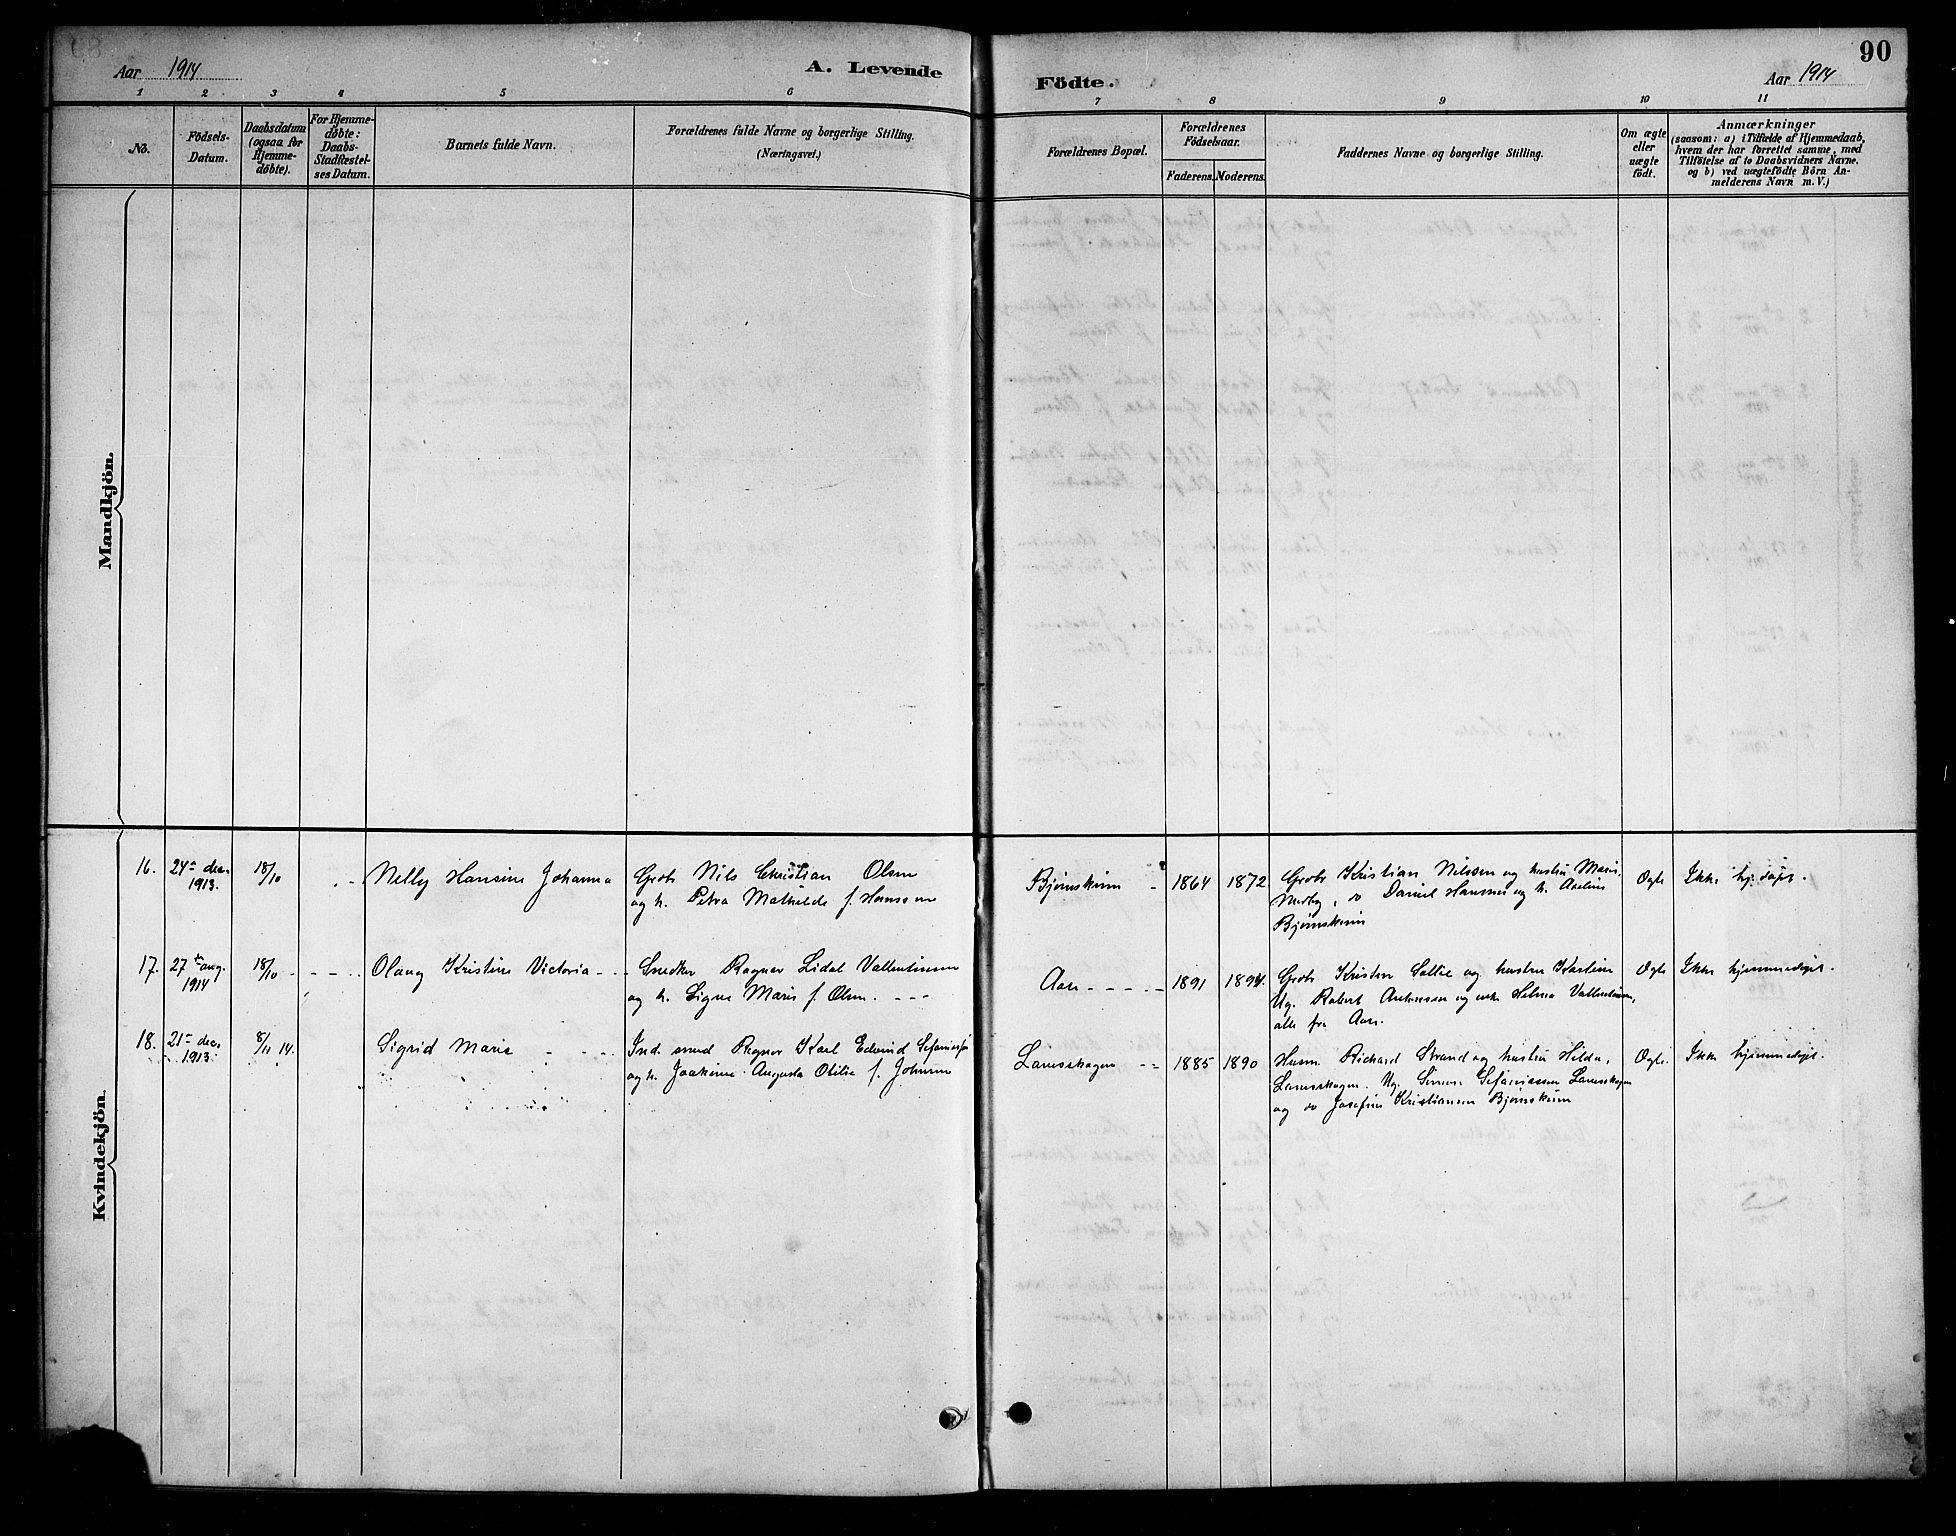 Aar 1914
A. Levende
Födte.
90
Aar 1914
1 2 3 4 5 6 7 8 9 10 11
No.
Födsels-
Datum.
Daabsdatum
(ogsaa for
Hjemme-
døbte).
For Hjemme-
døbte:
Daabs-
Stadfæstel-
ses Datum.
Barnets fulde Navn.
Forældrenes fulde Navne og borgerlige Stilling.
(Næringsvei.)
Forældrenes Bopæl.
Forældrenes
Födselsaar.
Faderens. Moderens.
Faddernes Navne og borgerlige Stilling.
Om ægte
eller
uægte
födt.
Anmærkninger
(saasom: a) i Tilfælde af Hjemmedaab,
hvem der har forrettet samme, med
Tilföielse af to Daabsvidners Navne.
og b) ved uægtefödte Börn An-
melderens Navn m. V.)
Mandkjön.
Kvindekjön.
16.
24de dec.
1913.
18/10
Nelly Hansine Johanna
Grbr. Nils Christian Olsen
og h. Petra Mathilde f. Hanssen
Bjørnskinn
1864
1872
Grbr Kristian Nilssen og hustru Marie,
Medby, do Daniel Hanssen og h. Axeline
Bjørnskinn
Ægte
Ikke hj.døpt.
17.
27de aug.
1914
18/10
Olaug Kristine Victoria
Snedker Ragnar Lidal Vallentinsen
og h. Signe Marie f. Olsen.
Aase
1891
1894.
Grbr Kristen og hustru Kastine
Ug. Robert og enke Helma Vallentinsen,
alle fra Aase.
Ægte
Ikke hjemmedøpt.
18.
21de dec.
1913.
8/11 14.
Sigrid Marie
Ind. smed Ragnar Karl Edvind
og h. Joakime Augusta Otilie f. Johnsen
Lanesskogen
1885
1890
Husm. Rickard Strand og hustru Hilda,
Lanesskogen. Ug. Simon Sefaniassen Lanesskogen
og do Josefine Kristiansen Bjørnskinn
Ægte.
Ikke hjemmedøpt.